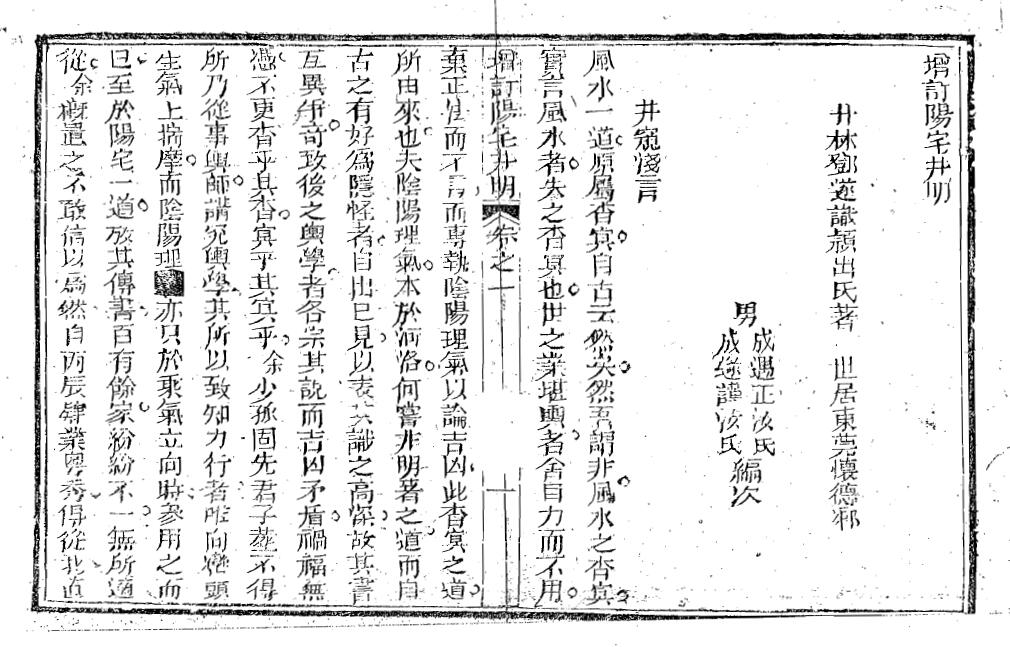 增訂陽宅井明
井林鄧遂識頴出氏著　世居東莞懷德鄉
男　成遇正汝氏
成 謹汝氏　編次
井窺淺言
風水一道原屬杳冥自古云然矣然吾謂非風水之杳冥
實言風水者失之杳冥也世之業堪輿者舍目力而不用
增訂陽宅井明　卷之一　一
棄正法而不言而專執陰陽理氣以論吉凶此杳冥之道
所由來也夫陰陽理氣本於河洛何嘗非明著之道而自
古之有好為隱怪者自出己見以表其識之高深故其書
互異爭奇致後之輿學者各宗其說而吉凶矛盾禍福無
憑不更杳乎其杳冥乎其冥乎余少孤因先君子塟不得
所乃從事輿師講究輿學其所以致知力行者唯向巒頭
生氣上揣摩而陰陽理 亦只於乘氣立向時參用之而
已至於陽宅一道放其傳書百有餘家紛紛不一無所適
從余概置之不敢信以爲然自丙辰肄業粵秀得從北直